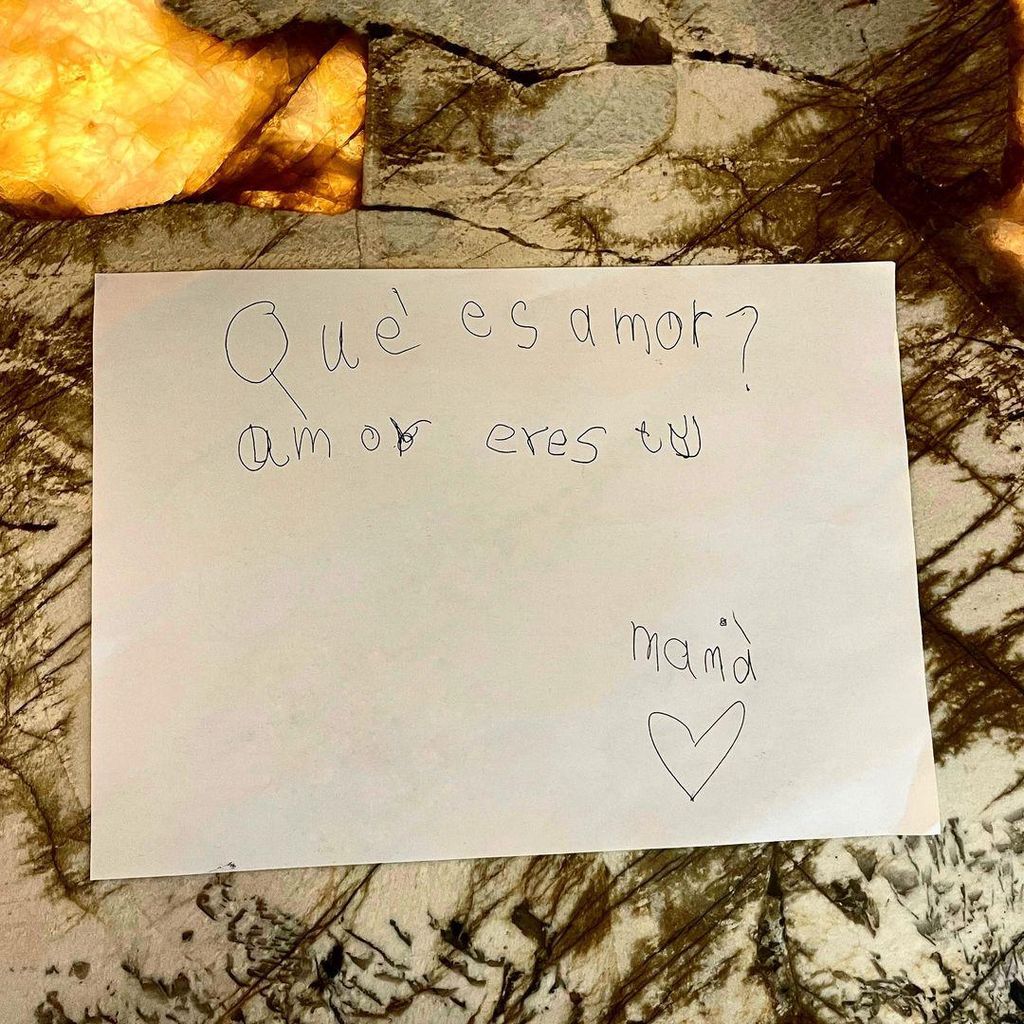 Què es amor?
amor eres tu
mamà